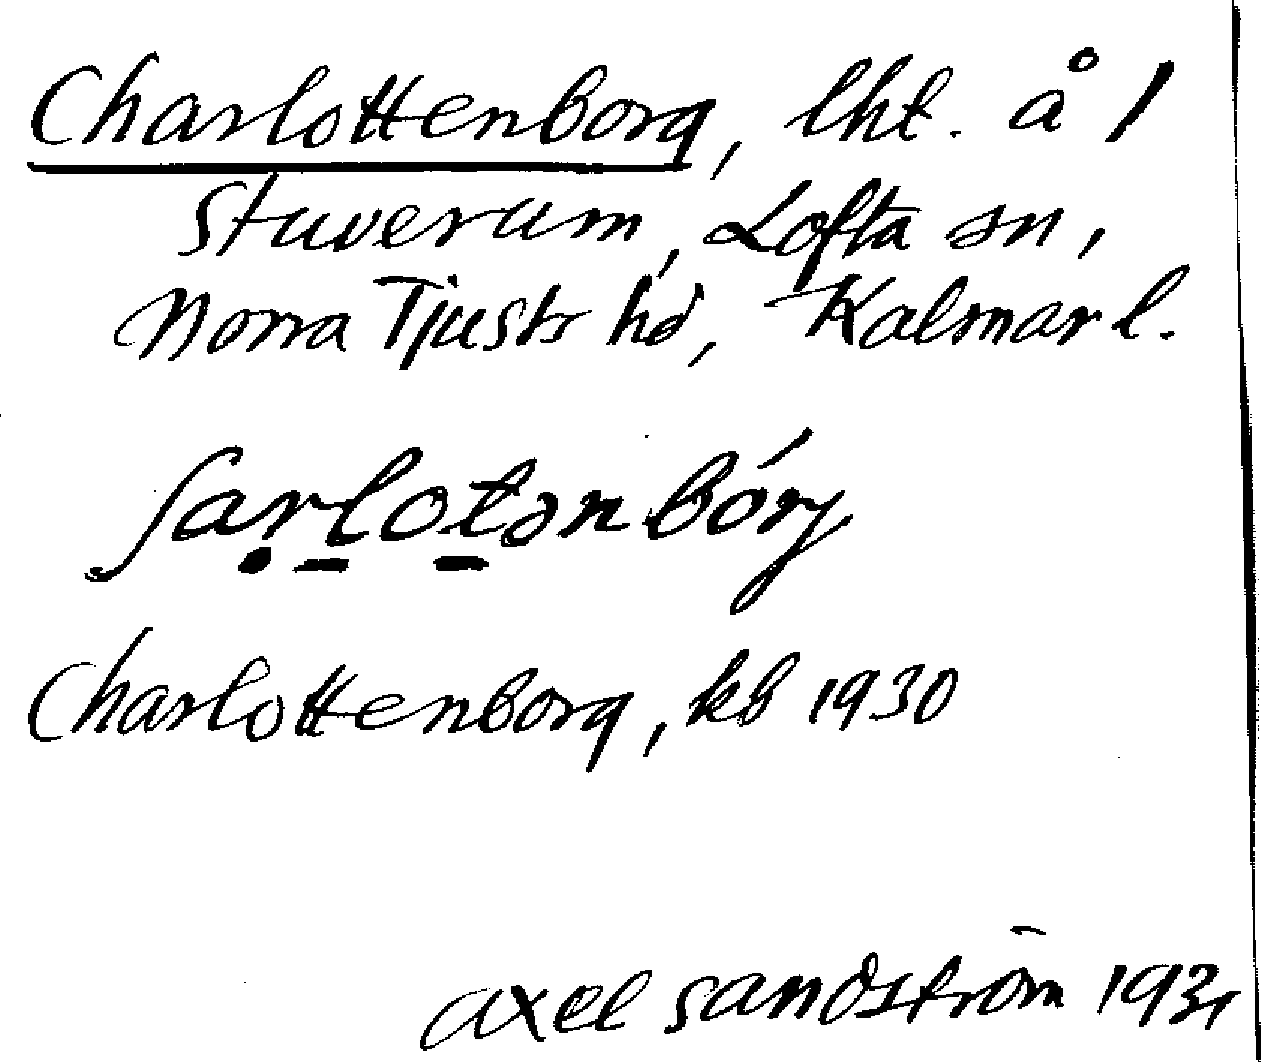 Charlottenborg, lht. å 1
Stuverum, Lofta sn,
Norra Tjusts hd, Kalmar l.
ʃarlotənbórj
Charlottenborg, kb 1930
Axel Sandström 1931